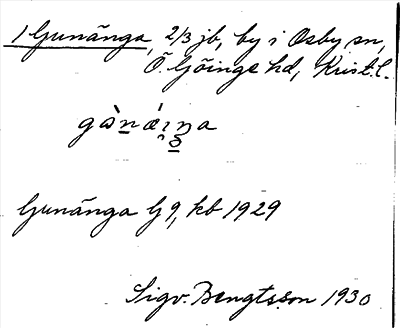 1 Gunänga, 2/3 jb, by i Osby sn,
Ö. Göinge hd, Krist. l.
Gunänga G 9, kb 1929
Sigv. Bengtsson 1930